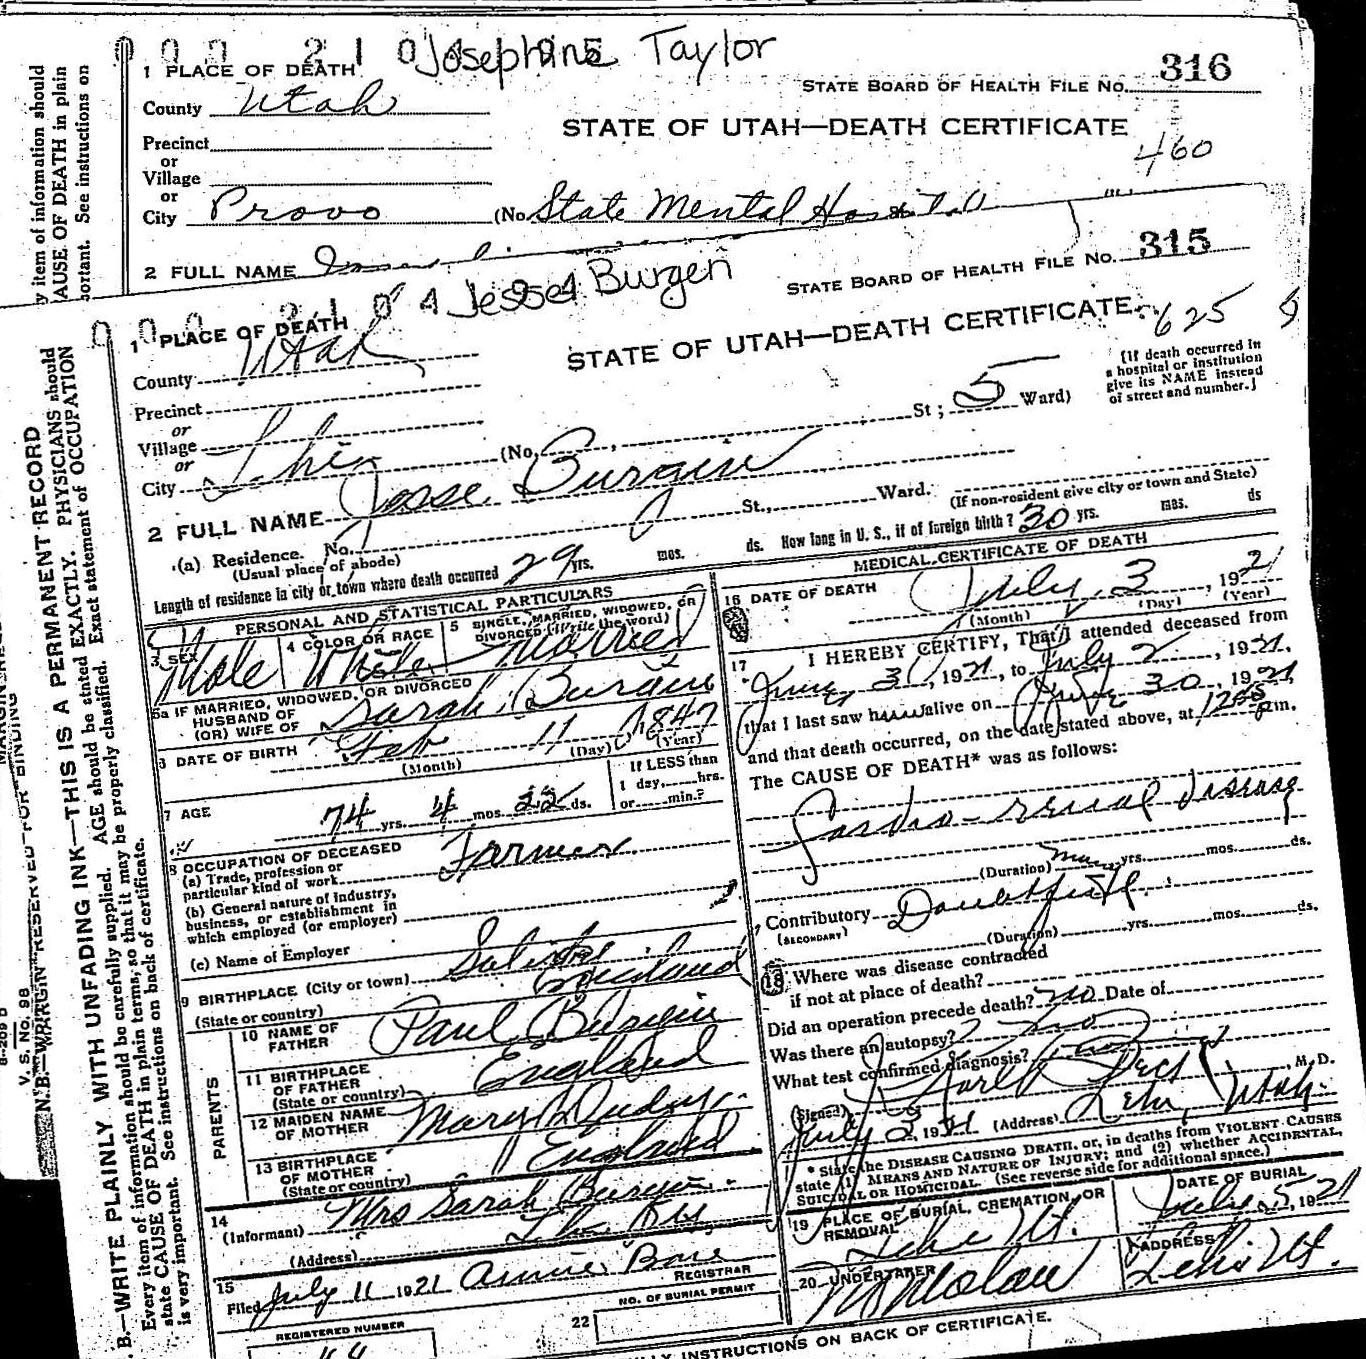 Josephine Taylor
1 PLACE OF DEATH
STATE BOARD OF HEALTH FILE NO. 316
County Utah
STATE OF UTAH—DEATH CERTIFICATE
460
Precinct
or
Village
or
City Provo (No. State Mental Hospital
2 FULL NAME
Jesse Burgen
STATE BOARD OF HEALTH FILE NO. 315
1 PLACE OF DEATH
County Utah
STATE OF UTAH—DEATH CERTIFICATE
625
[If death occurred in
a hospital or institution
give its NAME instead
of street and number.]
Precinct
or
Village
or
City Lehi (No. St; 5 Ward)
2 FULL NAME Jesse Burgin
(a) Residence. No. St., Ward.
(Usual place of abode) (If non-resident give city or town and State)
Length of residence in city or town where death occurred 29 yrs. mos. ds. How long in U. S., if of foreign birth? 30 yrs. mos. ds
PERSONAL AND STATISTICAL PARTICULARS
3 SEX Male
4 COLOR OR RACE White
5 SINGLE, MARRIED, WIDOWED, OR
DIVORCED (Write the word) Married
5a IF MARRIED, WIDOWED, OR DIVORCED
HUSBAND OF
(OR) WIFE OF Sarah Burgin
DATE OF BIRTH Feb 11 1847
(Month) (Day) (Year)
7 AGE 74 yrs. 4 mos. 22 ds.
If LESS than
1 day, hrs.
or min.?
8 OCCUPATION OF DECEASED
(a) Trade, profession or
particular kind of work Farmer
(b) General nature of industry,
business, or establishment in
which employed (or employer)
(c) Name of Employer
9 BIRTHPLACE (City or town)
(State or country) England
PARENTS
10 NAME OF
FATHER Paul Burgin
11 BIRTHPLACE
OF FATHER
(State or country) England
12 MAIDEN NAME
OF MOTHER Mary
13 BIRTHPLACE
OF MOTHER
(State or country) England
14
(Informant) Mrs Sarah Burgin
(Address)
15
Filed July 11 1921 Annie
REGISTRAR
REGISTERED NUMBER
22
NO. OF BURIAL PERMIT
MEDICAL CERTIFICATE OF DEATH
16 DATE OF DEATH July 3, 1921
(Month) (Day) (Year)
17 I HEREBY CERTIFY, That I attended deceased from
June 3, 1921, to July 2, 1921,
that I last saw him alive on June 30, 1921,
and that death occurred, on the date stated above, at m.
The CAUSE OF DEATH* was as follows:
Cardio-renal disease
(Duration) yrs. mos. ds.
Contributory Doubtful.
(SECONDARY)
(Duration) yrs. mos. ds.
18 Where was disease contracted
if not at place of death?
Did an operation precede death? no Date of
Was there an autopsy? no
What test confirmed diagnosis?
(Signed) M. D.
July 3, 1921 (Address) Lehi, Utah.
* State the DISEASE CAUSING DEATH, or, in deaths from VIOLENT CAUSES
state (1) MEANS AND NATURE OF INJURY; and (2) whether ACCIDENTAL,
SUICIDAL OR HOMICIDAL. (See reverse side for additional space.)
19 PLACE OF BURIAL, CREMATION, OR
REMOVAL Lehi Ut.
DATE OF BURIAL
July 5, 1921
20 UNDERTAKER
ADDRESS
Lehi Ut.
INSTRUCTIONS ON BACK OF CERTIFICATE.
y item of information should
AUSE OF DEATH in plain
portant. See instructions on
B.—WRITE PLAINLY WITH UNFADING INK—THIS IS A PERMANENT RECORD
Every item of information should be carefully supplied. AGE should be stated EXACTLY. PHYSICIANS should
state CAUSE OF DEATH in plain terms, so that it may be properly classified. Exact statement of OCCUPATION
is very important. See instructions on back of certificate.
V. S. No. 98
MARGIN RESERVED FOR BINDING